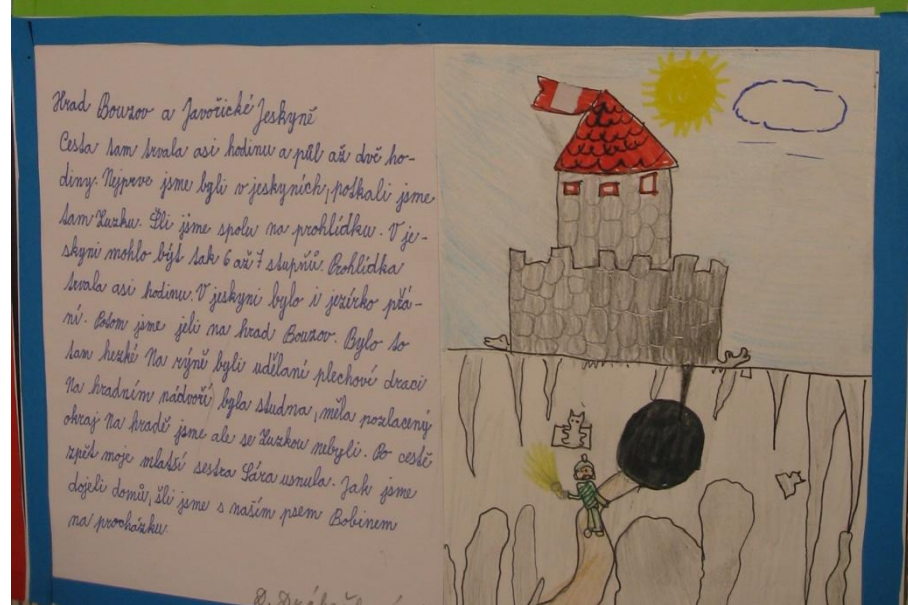 Hrad Bouzov a Javořické Jeskyně
Cesta tam trvala asi hodinu a půl až dvě ho-
diny. Nejprve jsme byli v jeskyních, potkali jsme
tam Zuzku. Šli jsme spolu na prohlídku. V je-
skyni mohlo být tak 6 až 7 stupňů. Prohlídka
trvala asi hodinu. V jeskyni bylo i jezírko přá-
ní. Potom jsme jeli na hrad Bouzov. Bylo to
tam hezké Na rýně byli udělaní plechoví draci
Na hradním nádvoří byla studna, měla pozlacený
okraj Na hradě jsme ale se Zuzkou nebyli. Po cestě
zpět moje mladší sestra Sára usnula. Jak jsme
dojeli domů, šli jsme s naším psem Bobinem
na procházku.
D.